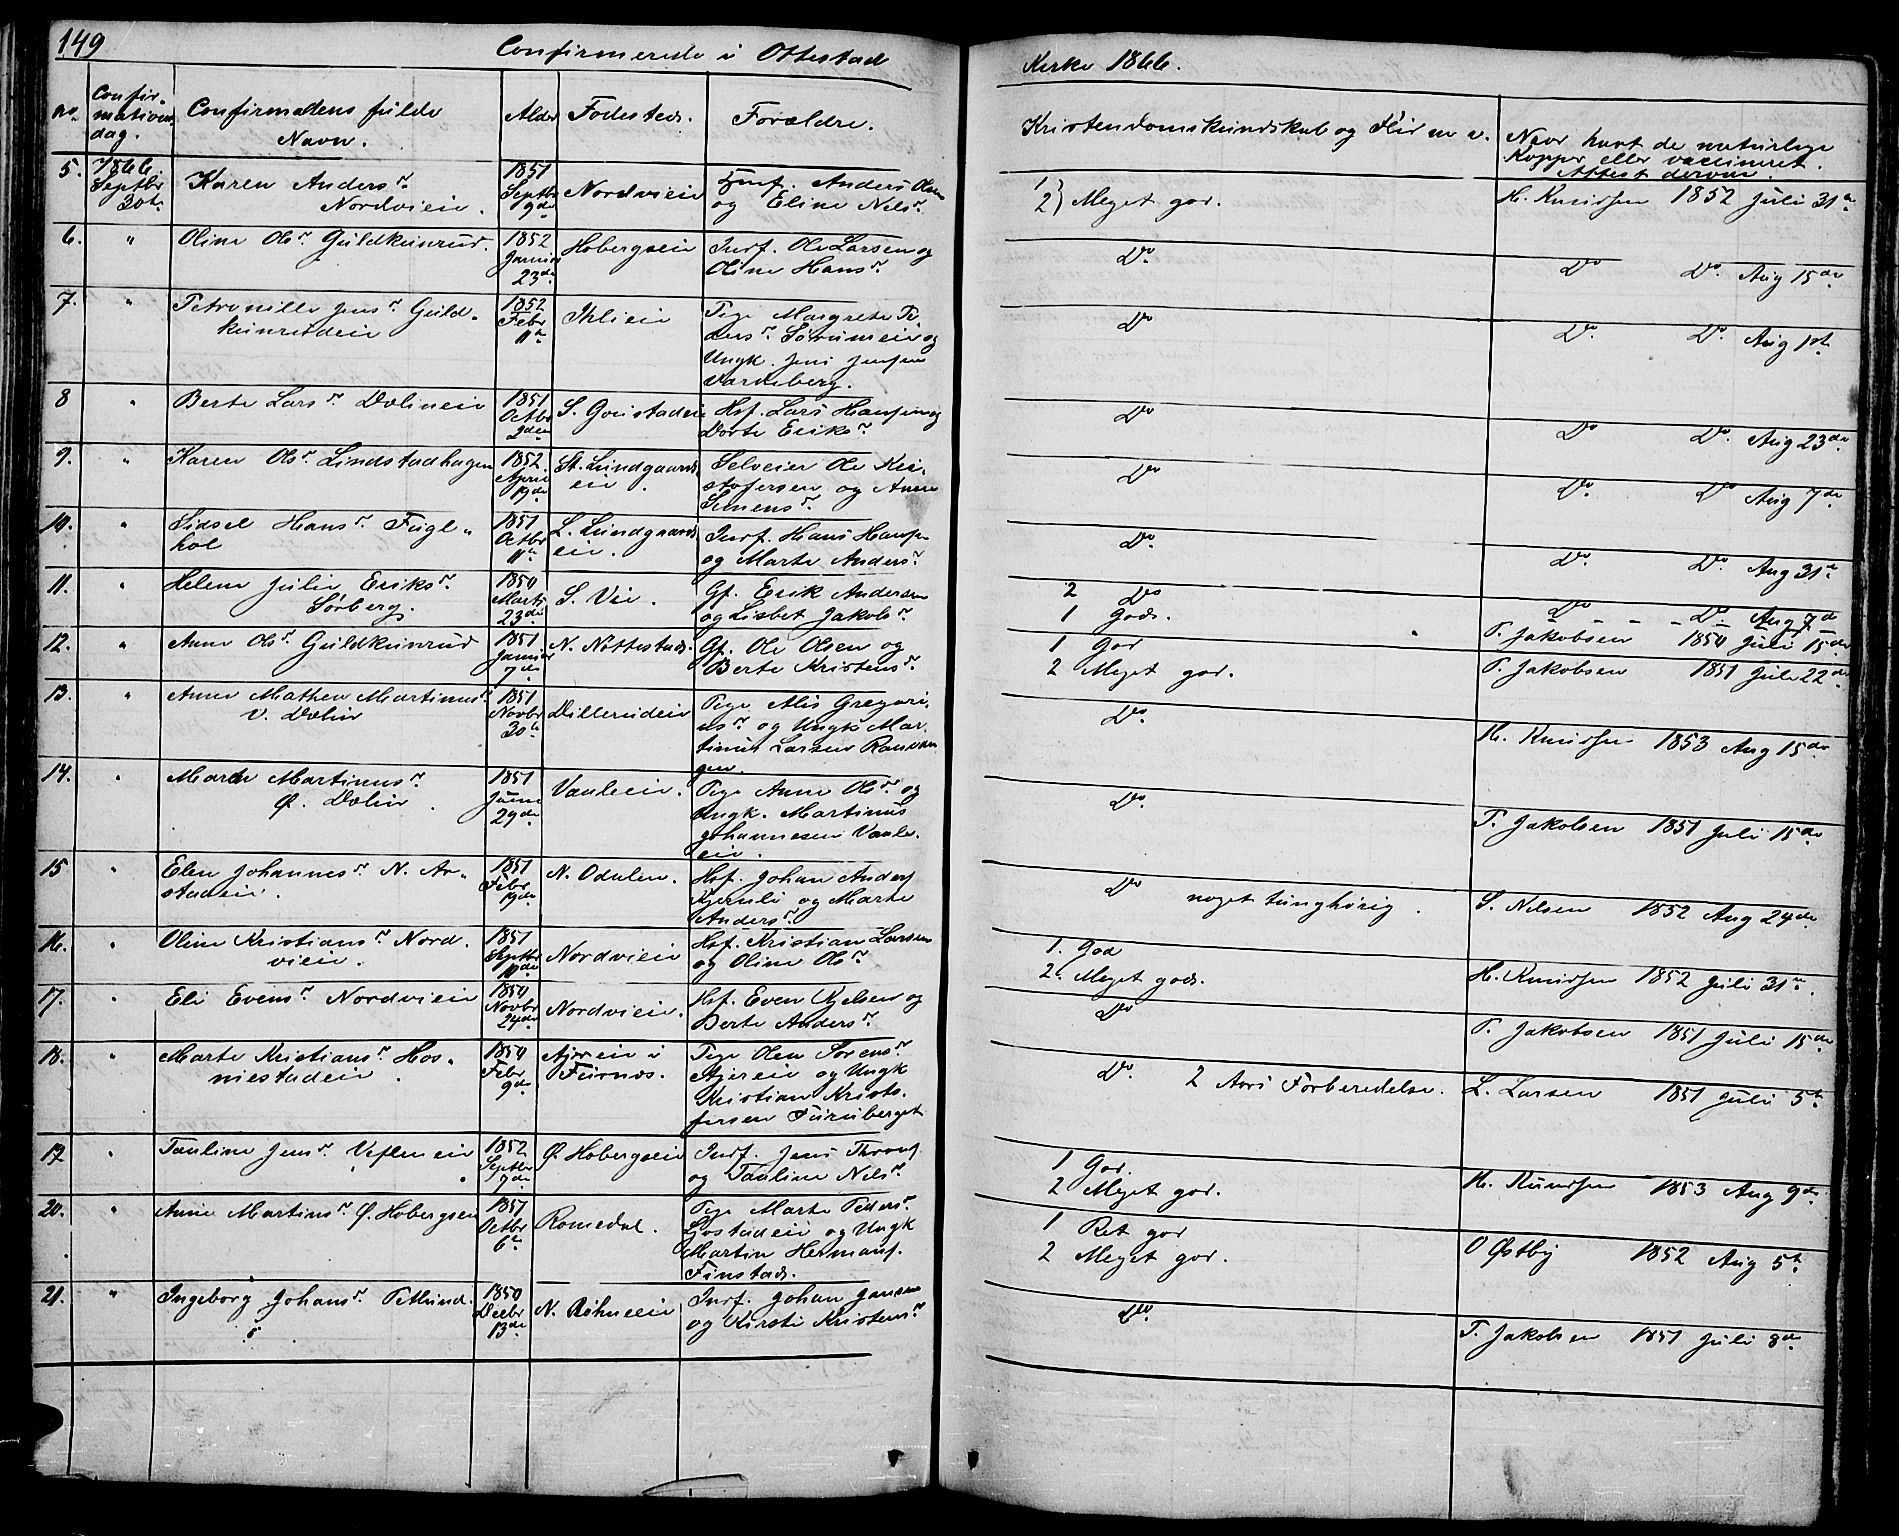 149
Confirmerede i Ottestad
Kirke 1866.
no.
Confir-
mations
dag.
Confirmadens fulde
Navn.
Alder
Fødested.
Forældre.
Kristendomskundskab og Flid m. v.
Naar havt de naturlige
Kopper eller vaccineret.
Attest derom.
5.
1866
Septbr
30te
Karen Andersr.
Nordvieie.
1851
Septbr
9de
Nordvieie
Anders Olsen
og Eline Nilsr.
1
2 } Meget god.
H. Knudsen 1852 Juli 31te
6.
"
Oline Olsr. Guldkunrud.
1852
Januar
23de
Hobergseie
Insf. Ole Larsen og
Oline Hansr.
Do.
Do Do. Aug 15de
7.
"
Petronille Jensr. Guld-
kunrudeie
1852
Febr
11te
Ihlieie
Pige Margrete Pe-
dersr. Sørumeie og
Ungk. Jens Jensen
Vardeberg.
Do
Do. Do. Aug 1ste
8
"
Berte Larsr. Dælineie
1851
Octbr
2den
S. Gustadeie
Hsf. Lars Hansen og
Dorte Eriksr.
Do
Do Do. Aug 23de
9.
"
Karen Olsr. Lindstadhagen
1852
April
19de
St. Lundgaards
eie.
Selveier Ole Kri-
stofersen og Anne
Simensr.
Do
Do. Do Aug 7de
10.
"
Sidsel Hansr. Fugl-
hol
1851
Octbr
11te
L. Lundgaards
eie.
Insf. Hans Hansen
og Marte Andersr.
Do.
Do. Do. Aug 31te
11.
"
Helene Julie Eriksr.
Sørberg.
1850
Marts
23de
S. Vie.
Gf. Erik Andersen
og Lisbet Jakobsr.
2 Do
1 God.
Do Do Aug 7de
P. Jakobsen 1850 Juli 15de
12.
"
Anne Olsr. Guldkunrud
1851
Januar
7de
N. Nøttestad.
Gf. Ole Olsen og
Berte Kristensr.
1 God
2 Meget god.
P. Jakobsen 1851 Juli 22de
13.
"
Anne Mathea Martinusr.
V. Dælin
1851
Novbr
30te
Dillerudeie
Pige Alis Gregori-
usr. og Ungk Mar-
tinus Larsen
gen.
Do.
H. Knudsen 1853 Aug 15de
14.
"
Maren Martinusr.
Ø. Dælin.
1851
Juni
29de
Vauleeie.
Pige Anne Olsr. og
Ungk. Martinus
Johannesen Vaule-
eie.
Do.
P. Jakobsen 1851 Juli 15de
15
"
Elen Johannesr. N. Ar-
stadeie.
1851
Febr
19de
N. Odalen.
Hsf. Johan Anders
Kjernli og Marte
Andersr.
Do noget tunghørig.
S. Nilsen 1852 Aug 24de
16.
"
Oline Kristiansr. Nord-
vieie.
1851
Septbr
10de
Nordvieie
Hsf. Kristian Larsen
og Oline Olsr.
1. God
2. Meget god.
H. Knudsen 1852 Juli 31te
17.
"
Eli Evensr. Nordvieie
1850
Novbr
24de
Nordvieie.
Hsf. Even Kjelsen og
Berte Andersr.
Do
P. Jakobsen 1851 Juli 15de
18.
"
Marte Kristiansr. Hos-
mestadeie.
1850
Febr
9de
Ajereie i
Furnæs.
Pige Olea Sørensr.
Ajereie og Ungk
Kristian Kristo-
fersen Furuberget
Do. 2 Aars Forberedelse.
L. Larsen 1851 Juli 5te
19
"
Pauline Jensr. Veflen eie.
1852
Septbr
7de
Ø Hobergseie
Insf. Jens Thron
og Pauline Nilsr.
1 God.
2 Meget god.
H. Knudsen 1853 Aug 9de
20.
"
Anne Martinsr. Ø. Hobergseie
1851
Octbr
6te
Romedal.
Pige Marte Pedersr.
Gostadeie og Ungk
Martin Hermans.
Finstad.
1 Ret god
2 Meget god.
O Østby 1852 Aug 5te
21.
"
Ingeborg Johansr. Petlund.
1850
Decbr
13de
N. Røhneeie
Insf. Johan Jansen
og Kirsti Kristensr.
Do.
P. Jakobsen 1851 Juli 8de